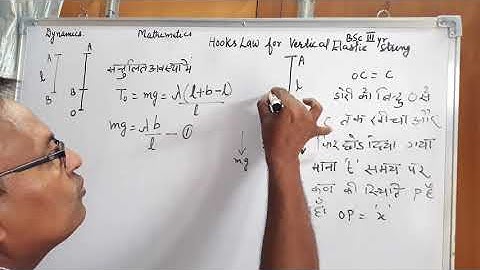 Dynamics Mathematics BSc III yr
Hooks Law for Vertical Elastic String
A A
l
B B
O
सन्तुलित अवस्था में
T₀ = mg = λ(l+b-l)/l
mg = λb/l — ①
A
l
mg
OC = C
डोरी को बिन्दु O से
C तक खींचा और
छोड़ दिया गया
माना 't' समय पर
कण की स्थिति P है
OP = 'x'